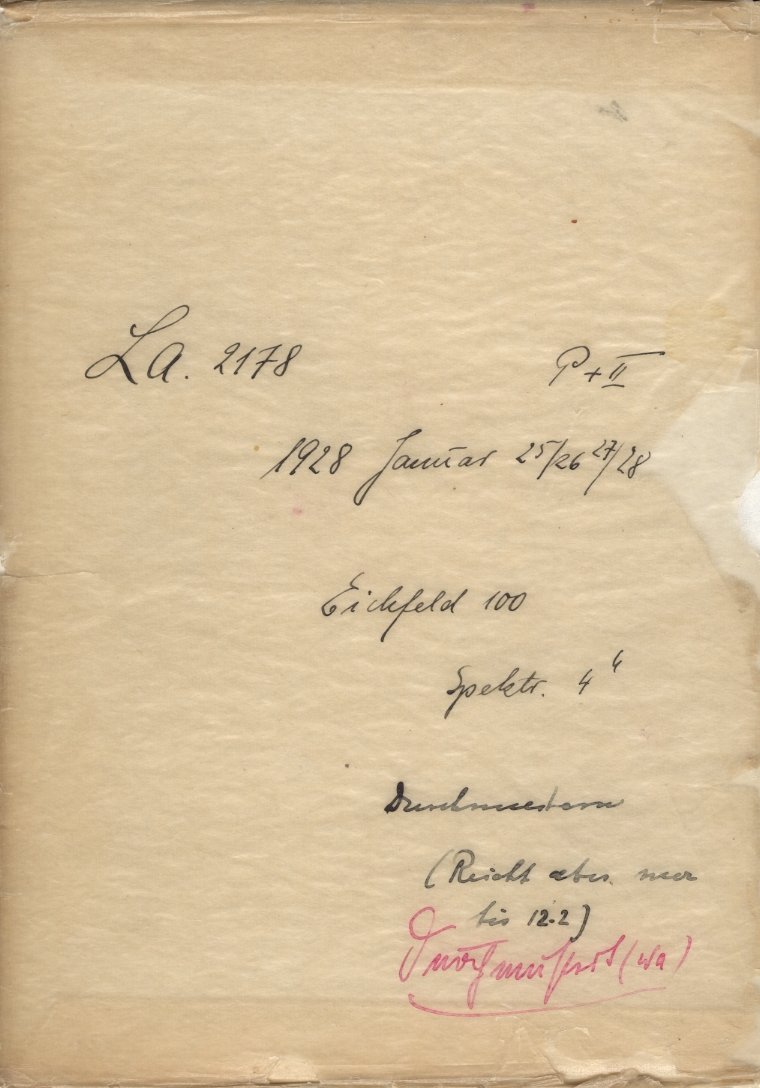 La. 2178 P + II
1928 Januar 25/26 27/28
Eichfeld 100
Spektr. 4h
Durchmustern
(Reicht aber nur
bis 12.2)
Durchmustert (Wa)